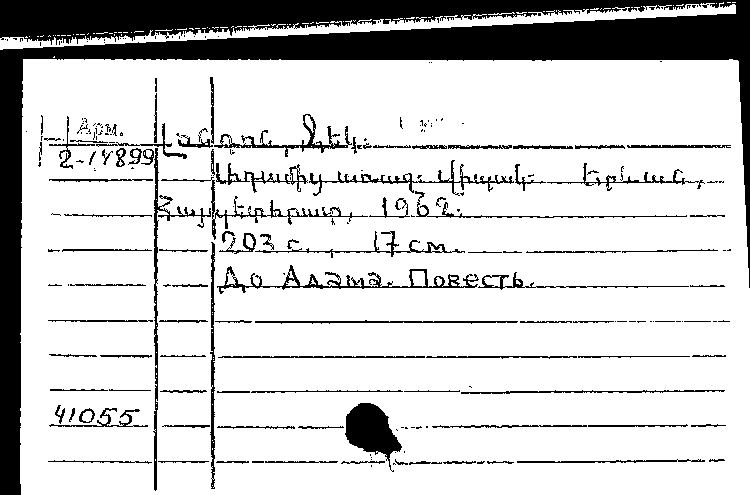 Арм.
2-14899
Լոնդոն, Ջեկ:
Ադամից առաջ: Վիպակ: Երևան,
Հայպետհրատ, 1962:
203 с., 17 см.
До Адама. Повесть.
41055